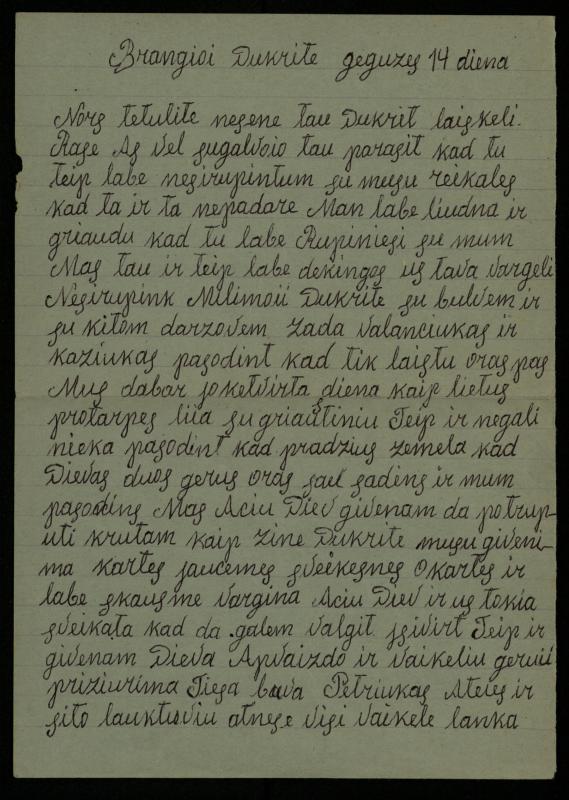 Brangioi Dukrite geguzes 14 diena
Nors tetulite nesene tau Dukrit laiskeli.
Rase As vel sugalvoio tau parasit kad tu
teip labe nesirupintum su musu reikales
kad ta ir ta nepadare Man labe liudna ir
griaudu kad tu labe Rupiniesi su mum
Mas tau ir teip labe dekingos us tava vargeli
Nesirupink Milimoii Dukrite su bulvem ir
su kitom darzovem zada valanciukas ir
kaziukas pasodint kad tik laistu oras pas
Mus dabar jo ketvirta diena kaip lietus
protarpes liia su griaustiniu Teip ir negali
nieka pasodint kad pradzius zemela kad
Dievas duos gerus oras sael sadins ir mum
pasodins Mas Aciu Diev givenam da potrup-
uti krutam kaip zine Dukrite musu giveni-
ma kartes jaucemes sveikesnes o kartes ir
labe skausme vargina Aciu Diev ir us tokia
sveikata kad da galem valgit jsivirt Teip ir
givenam Dieva Apvaizdo ir vaikeliu geruii
priziurima Tiesa buva Petriukas Ateies ir
sito lauktuviu atnese visi vaikele lanka